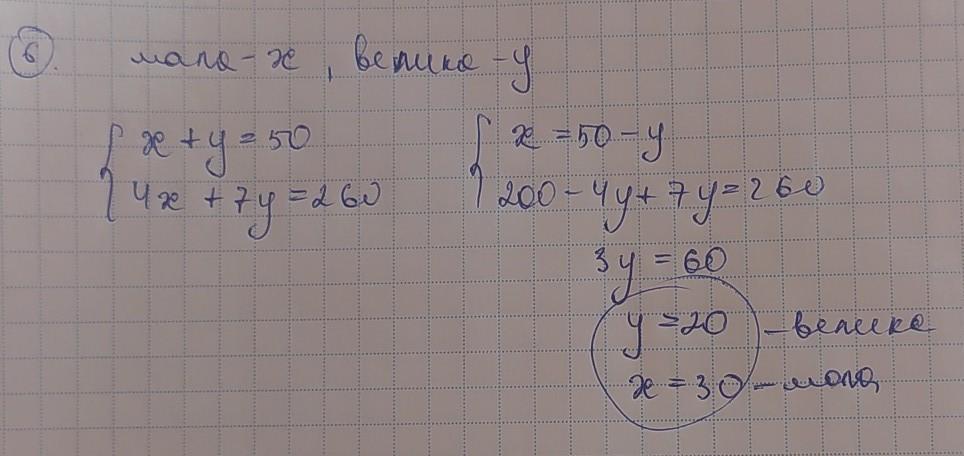 6. мала - x, велика - y
{ x + y = 50
4x + 7y = 260
{ x = 50 - y
200 - 4y + 7y = 260
3y = 60
y = 20 - велика
x = 30 - мала